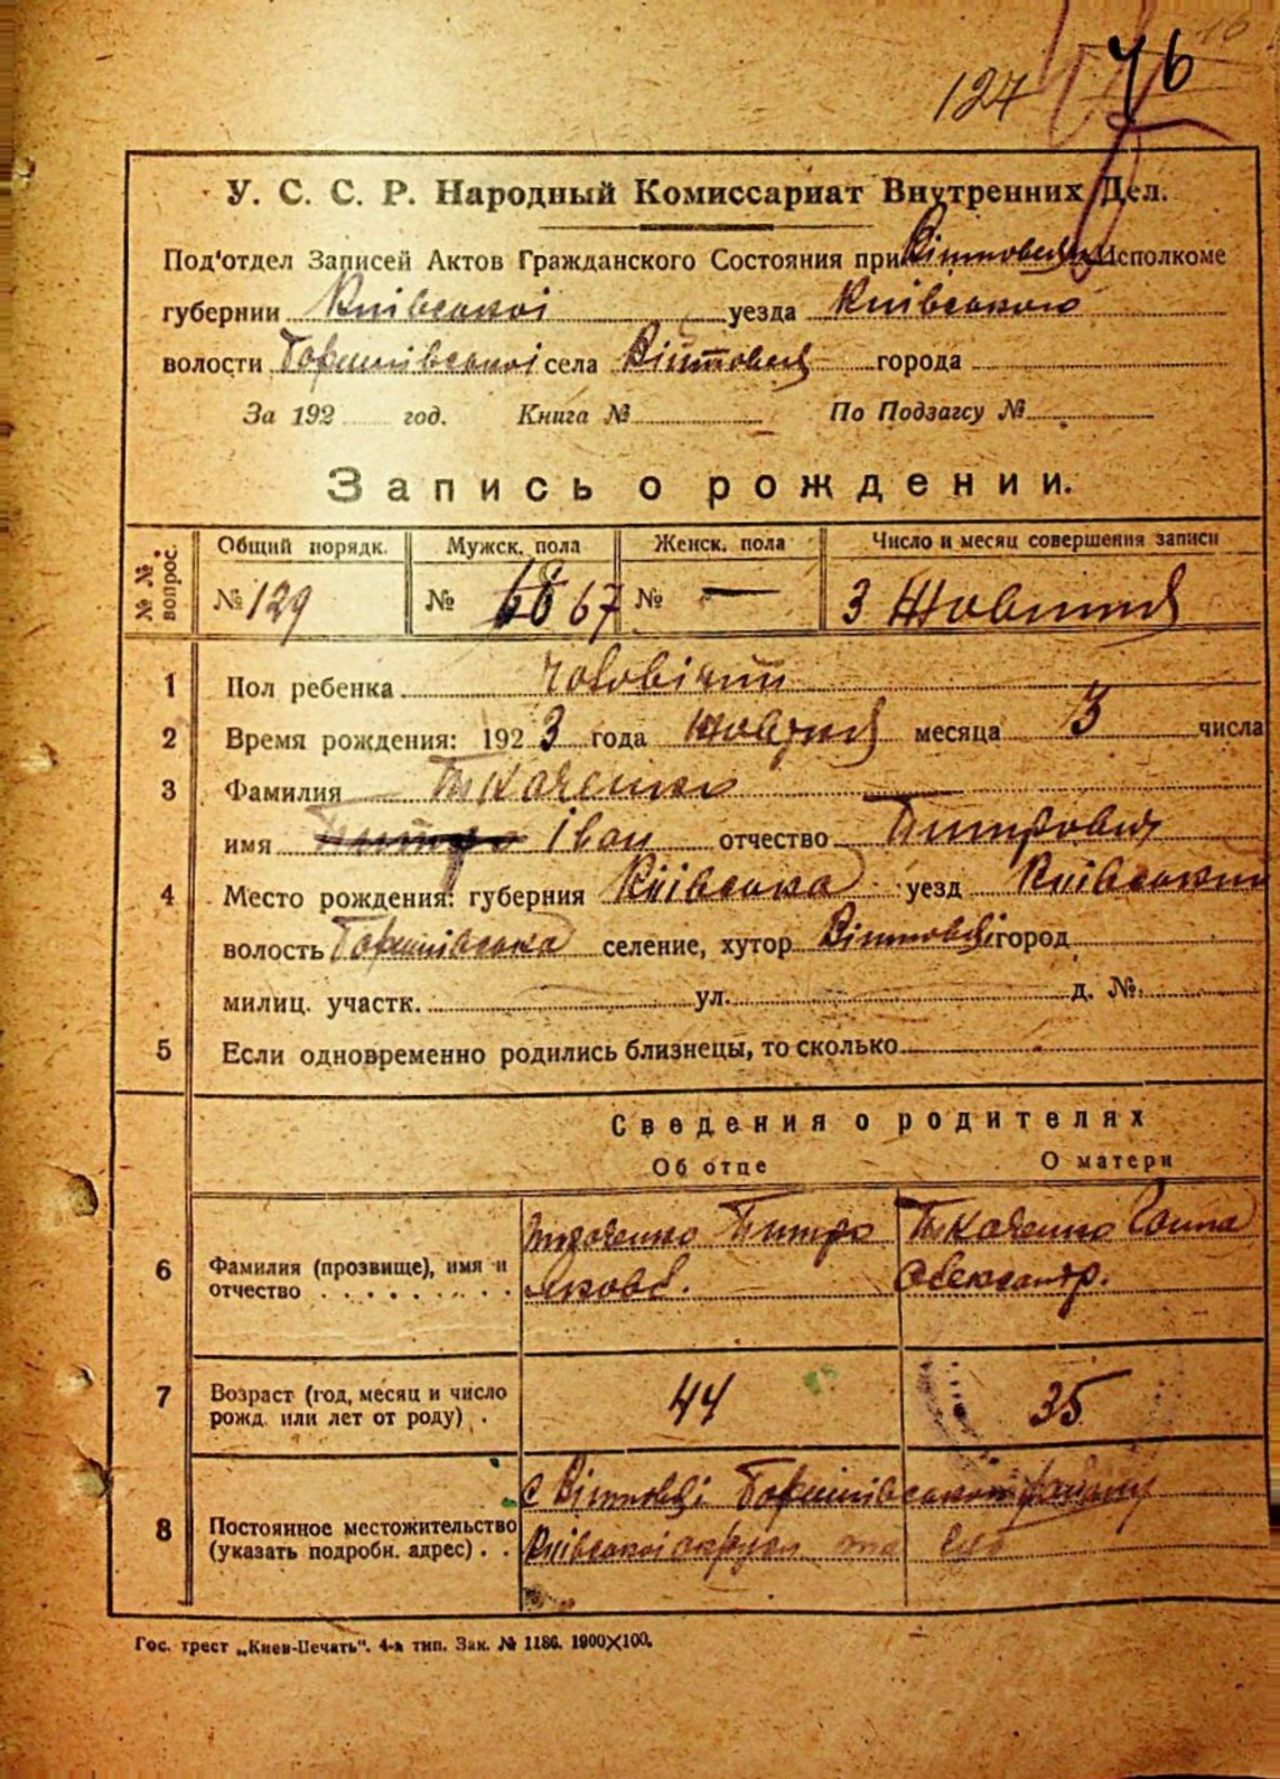 127 76
У. С. С. Р. Народный Комиссариат Внутренних Дел.
Под'отдел Записей Актов Гражданского Состояния при Исполкоме
губернии Київської уезда Київського
волости села города
За 192 год. Книга № По Подзагсу №
Запись о рождении.
№ № вопрос. Общий порядк. Мужск. пола Женск. пола Число и месяц совершения записи
№ 129 № 67 № — 3 Жовтня
1 Пол ребенка Чоловічий
2 Время рождения: 1923 года Жовтня месяца 3 числа
3 Фамилия Ткаченко
имя Іван отчество Петрович
4 Место рождения: губерния Київська уезд Київський
волость селение, хутор город
милиц. участк. ул. д. №.
5 Если одновременно родились близнецы, то сколько
Сведения о родителях
Об отце О матери
6 Фамилия (прозвище), имя и отчество Ткаченко Петро Яков. Ткаченко Ганна Олександр.
7 Возраст (год, месяц и число рожд. или лет от роду) 44 35
8 Постоянное местожительство (указать подробн. адрес) с району
Київської округи
Гос. трест „Киев-Печать". 4-я тип. Зак. № 1186. 1900×100.